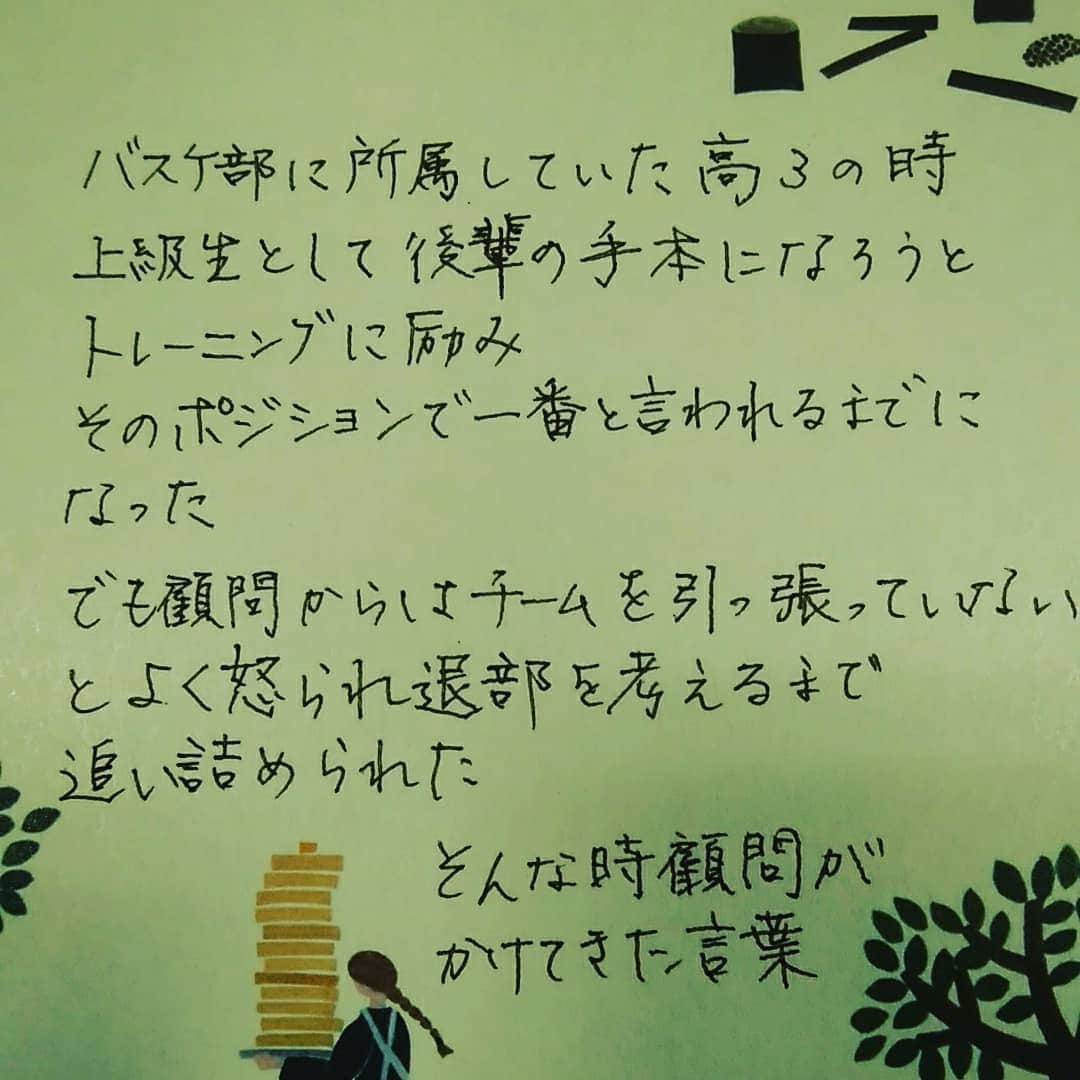 バスケ部に所属していた高3の時
上級生として後輩の手本になろうと
トレーニングに励み
そのポジションで一番と言われるまでに
なった
でも顧問からはチームを引っ張っていない
とよく怒られ退部を考えるまで
追い詰められた
そんな時顧問が
かけてきた言葉